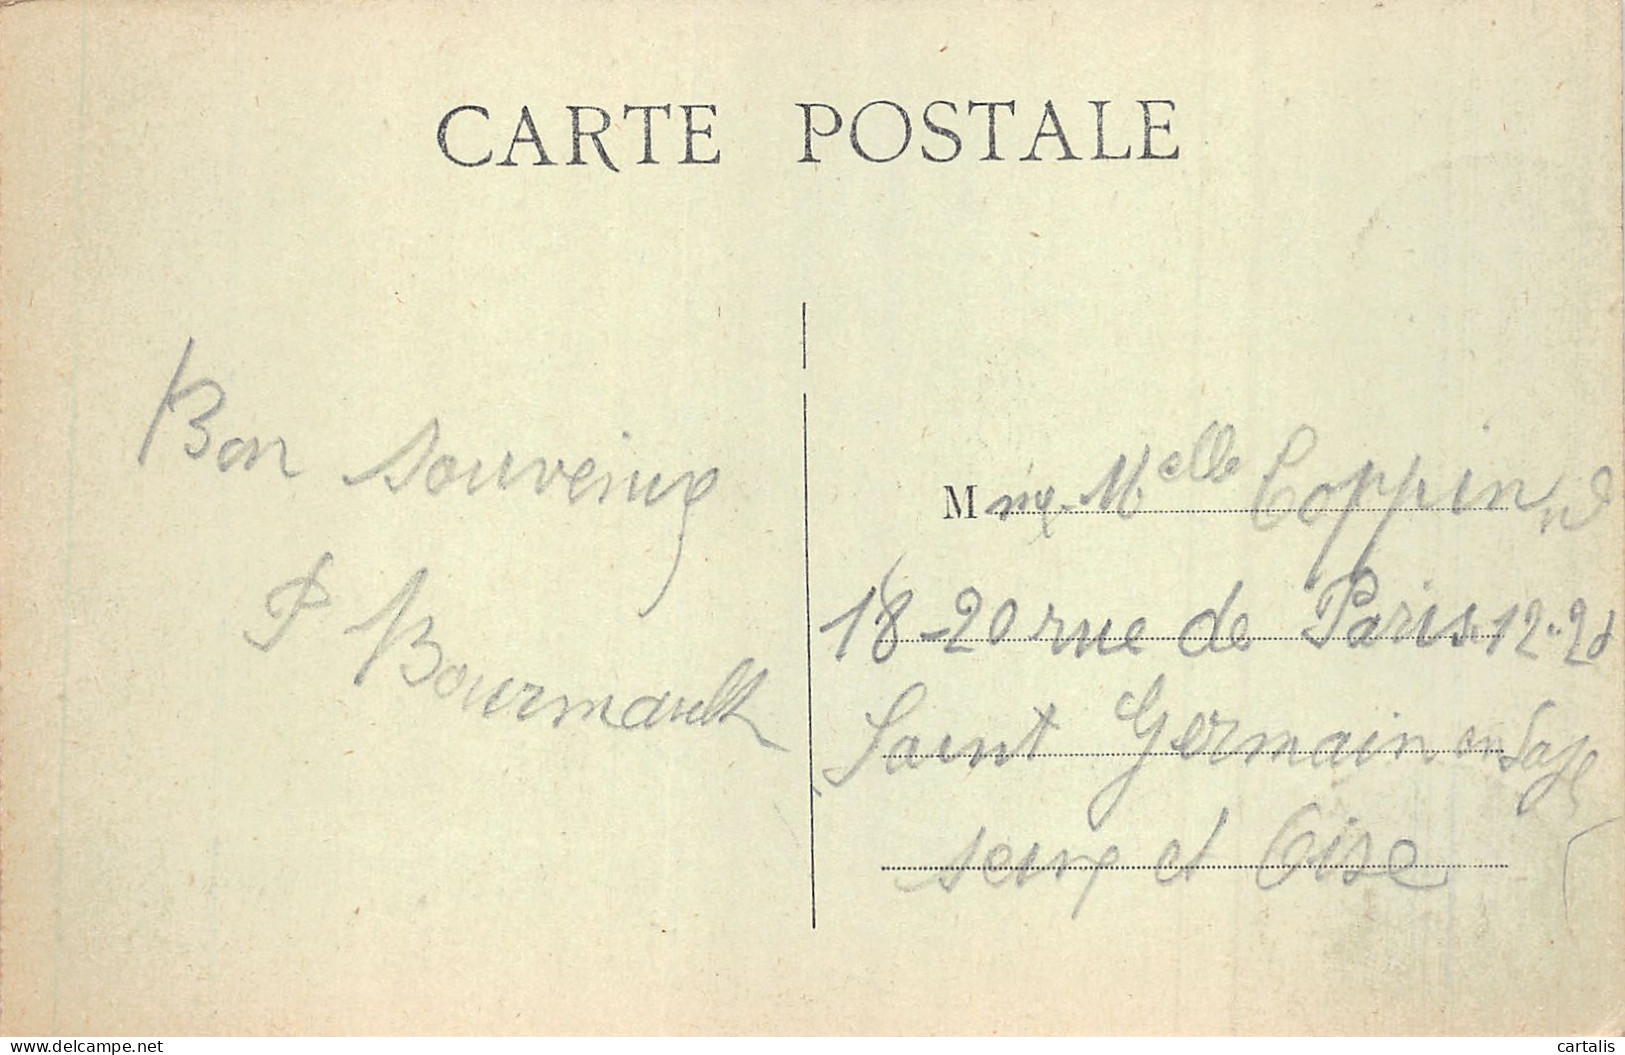 CARTE POSTALE
Bon souvenir
P Bourmault
M Melle Coppin
18-20 rue de Paris
Saint Germain en Laye
seine et Oise
cartalis